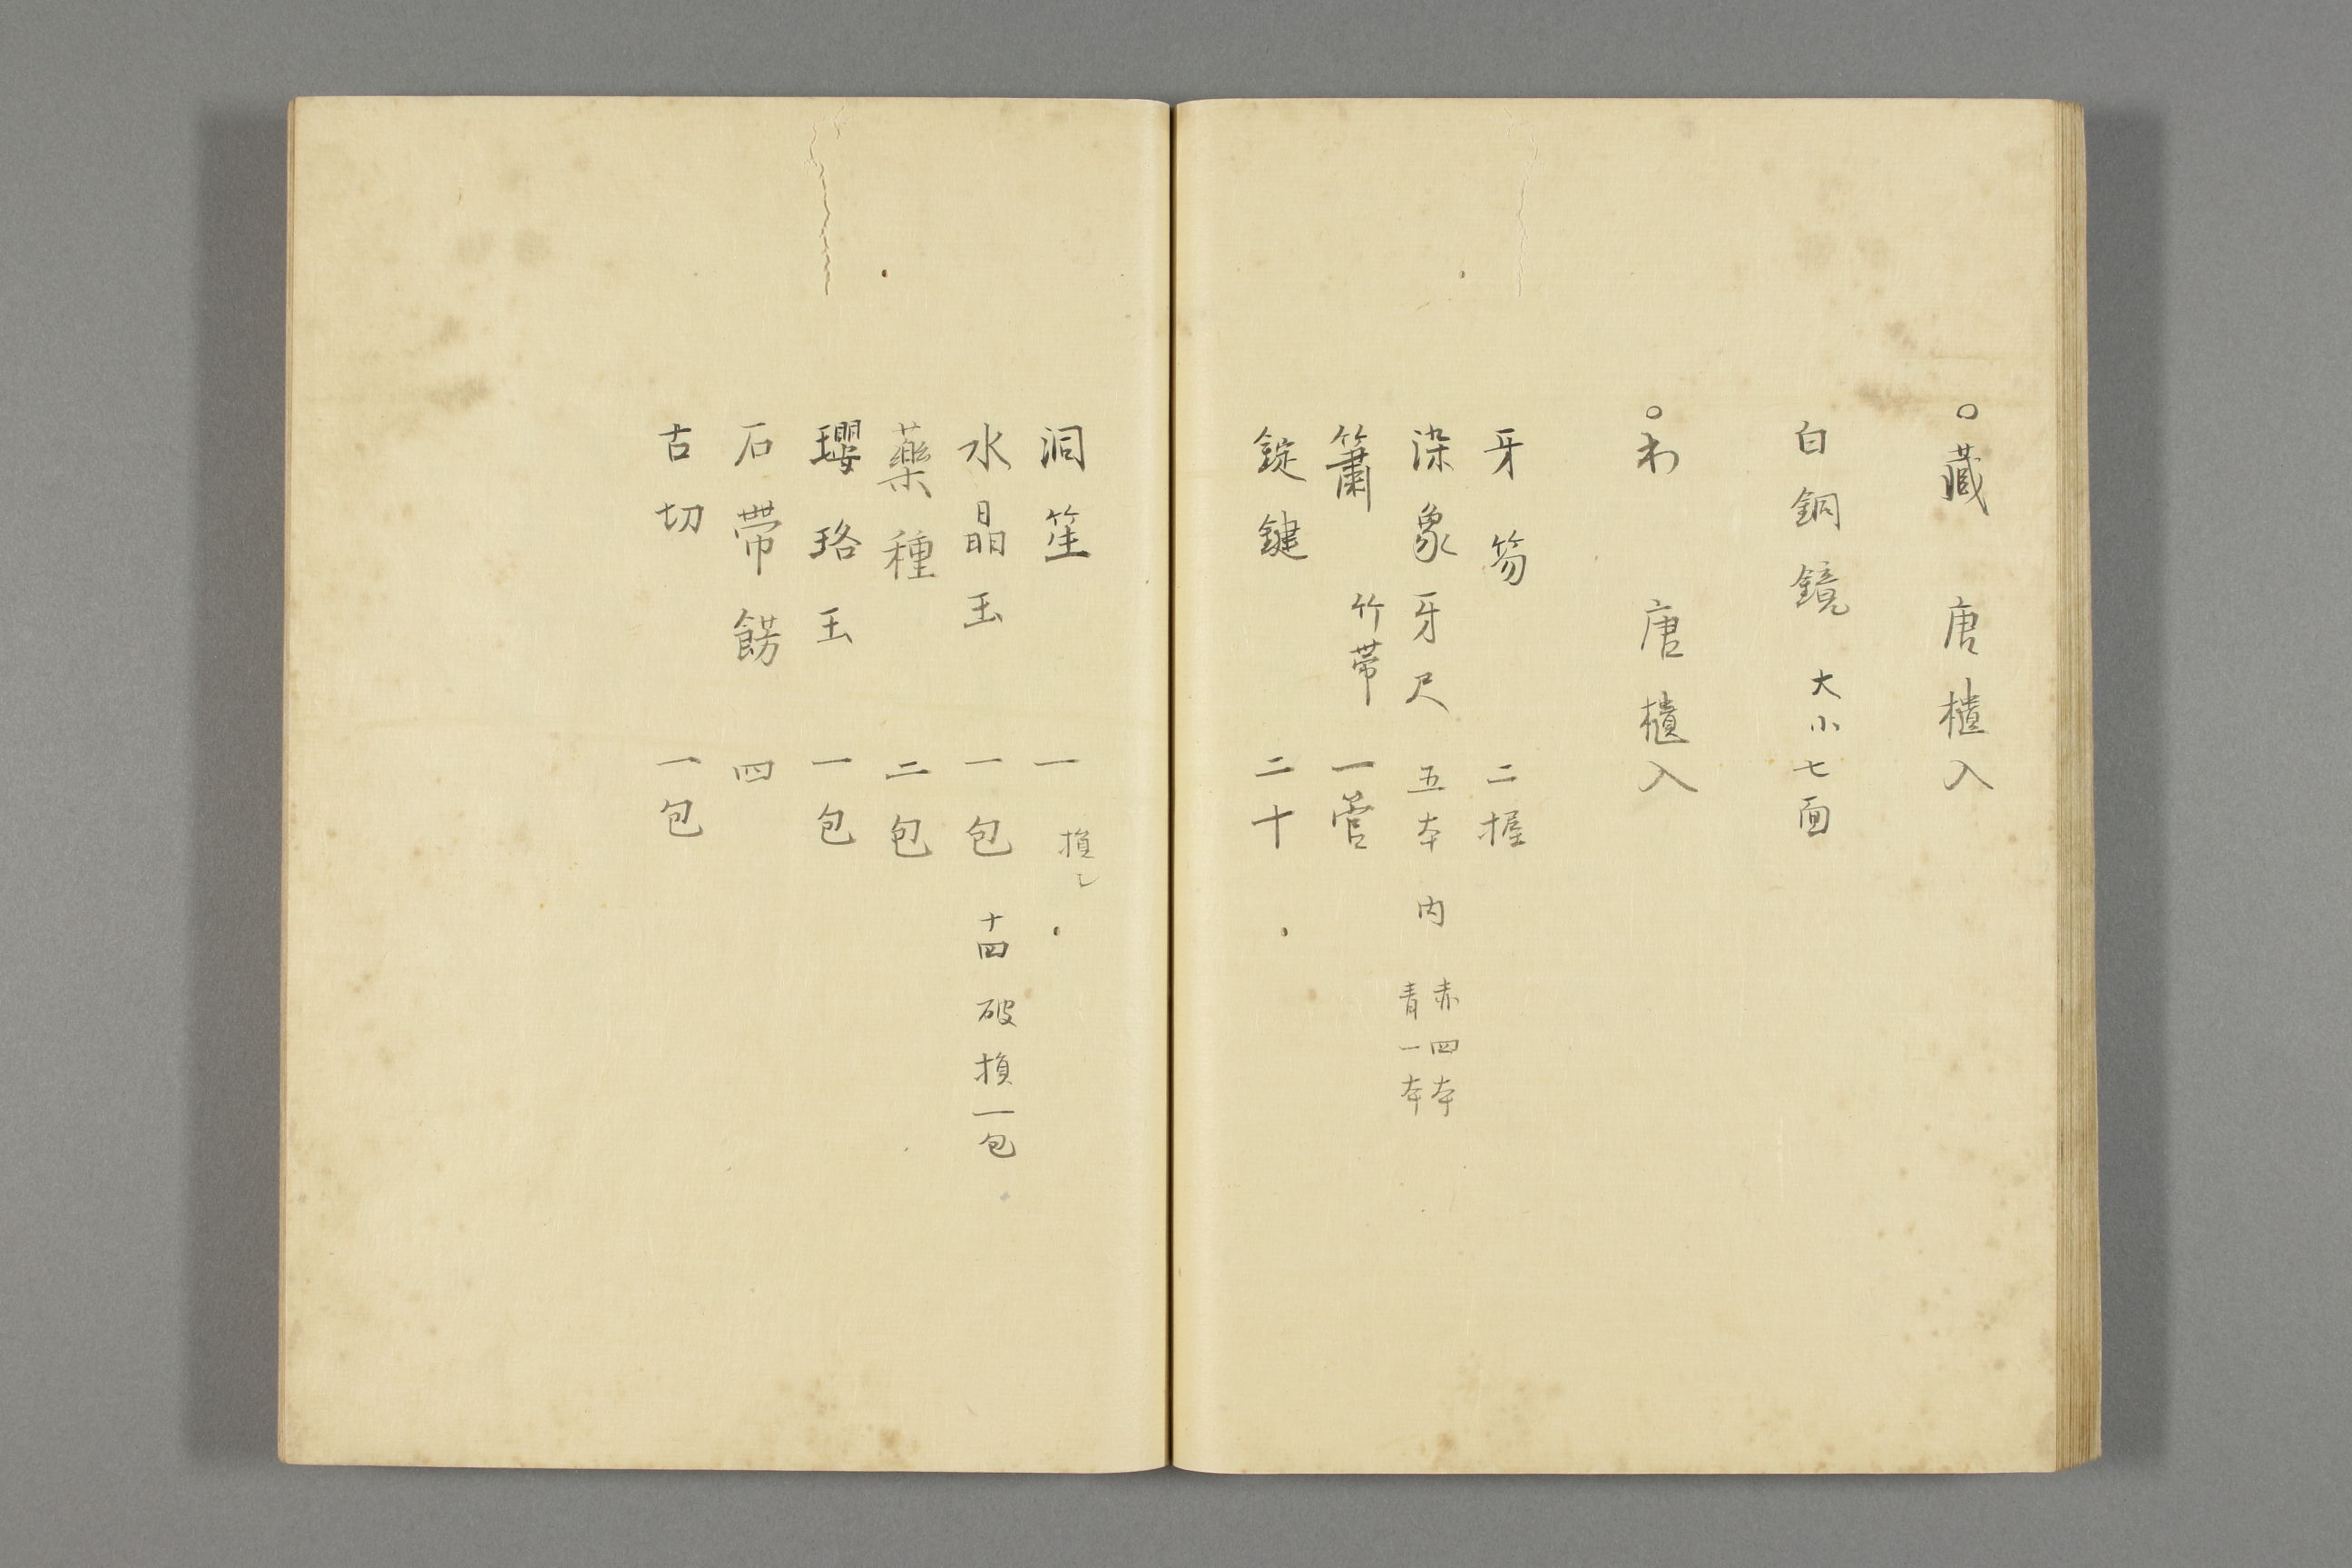 ○藏　唐櫃入
白銅鏡　大小七面
○わ　唐櫃入
牙笏　二握
染象牙尺　五本　内　赤四本
青一本
簫　竹帯　一管
錠鍵　二十
洞笙　一　損し
水晶玉　一包　十四　破損一包
藥種　二包
瓔珞玉　一包
石帶餝　四
古切　一包